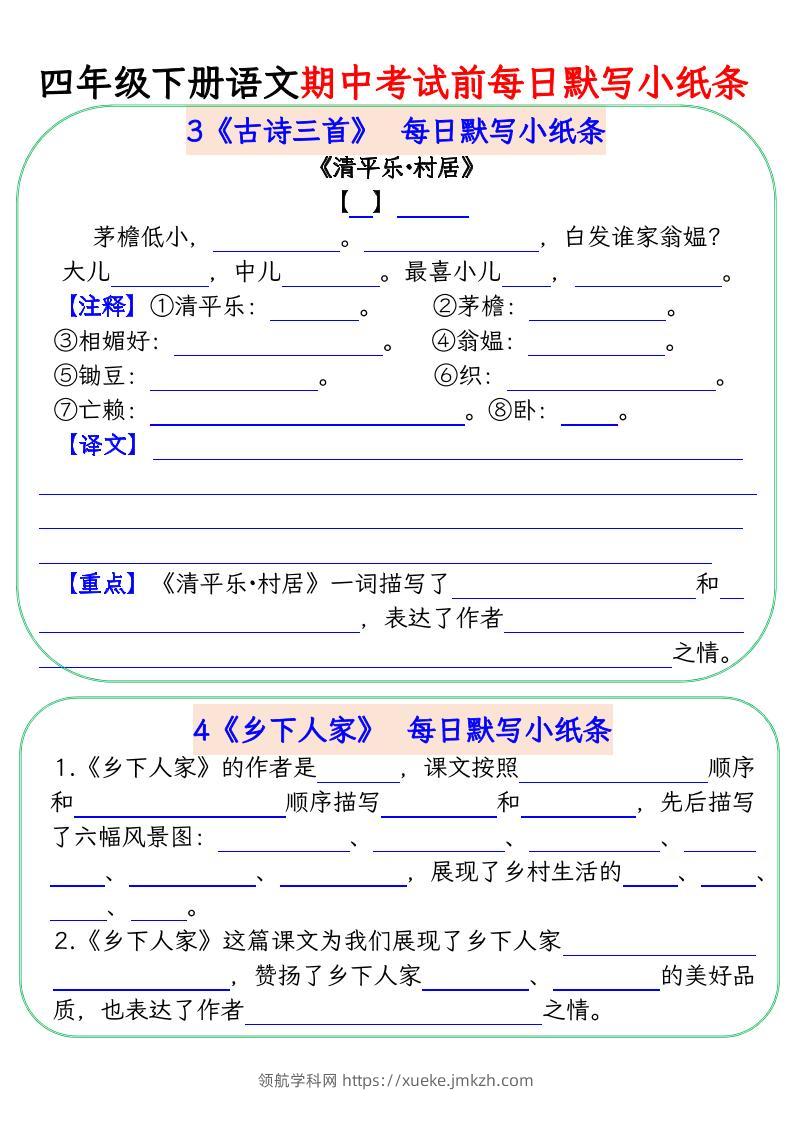 四年级下册语文期中考试前每日默写小纸条
3《古诗三首》 每日默写小纸条
《清平乐•村居》
【__】 ______
茅檐低小，__________。______________，白发谁家翁媪？
大儿________，中儿________。最喜小儿____，____________。
【注释】①清平乐：_______。 ②茅檐：___________。
③相媚好：_________________。 ④翁媪：___________。
⑤锄豆：______________。 ⑥织：_________________。
⑦亡赖：__________________________。⑧卧：_____。
【译文】________________________________________________
____________________________________________________________
__________________________________________________________
________________________________________________________
【重点】《清平乐•村居》一词描写了____________________和__
__________________________，表达了作者____________________
____________________________________________________之情。
4《乡下人家》 每日默写小纸条
1.《乡下人家》的作者是_______，课文按照________________顺序
和_________________顺序描写__________和__________，先后描写
了六幅风景图：___________、___________、___________、______
_____、__________、__________，展现了乡村生活的_____、_____、
_____、_____。
2.《乡下人家》这篇课文为我们展现了乡下人家________________
_______________，赞扬了乡下人家_________、_________的美好品
质，也表达了作者_________________________之情。
领航学科网 https://xueke.jmkzh.com